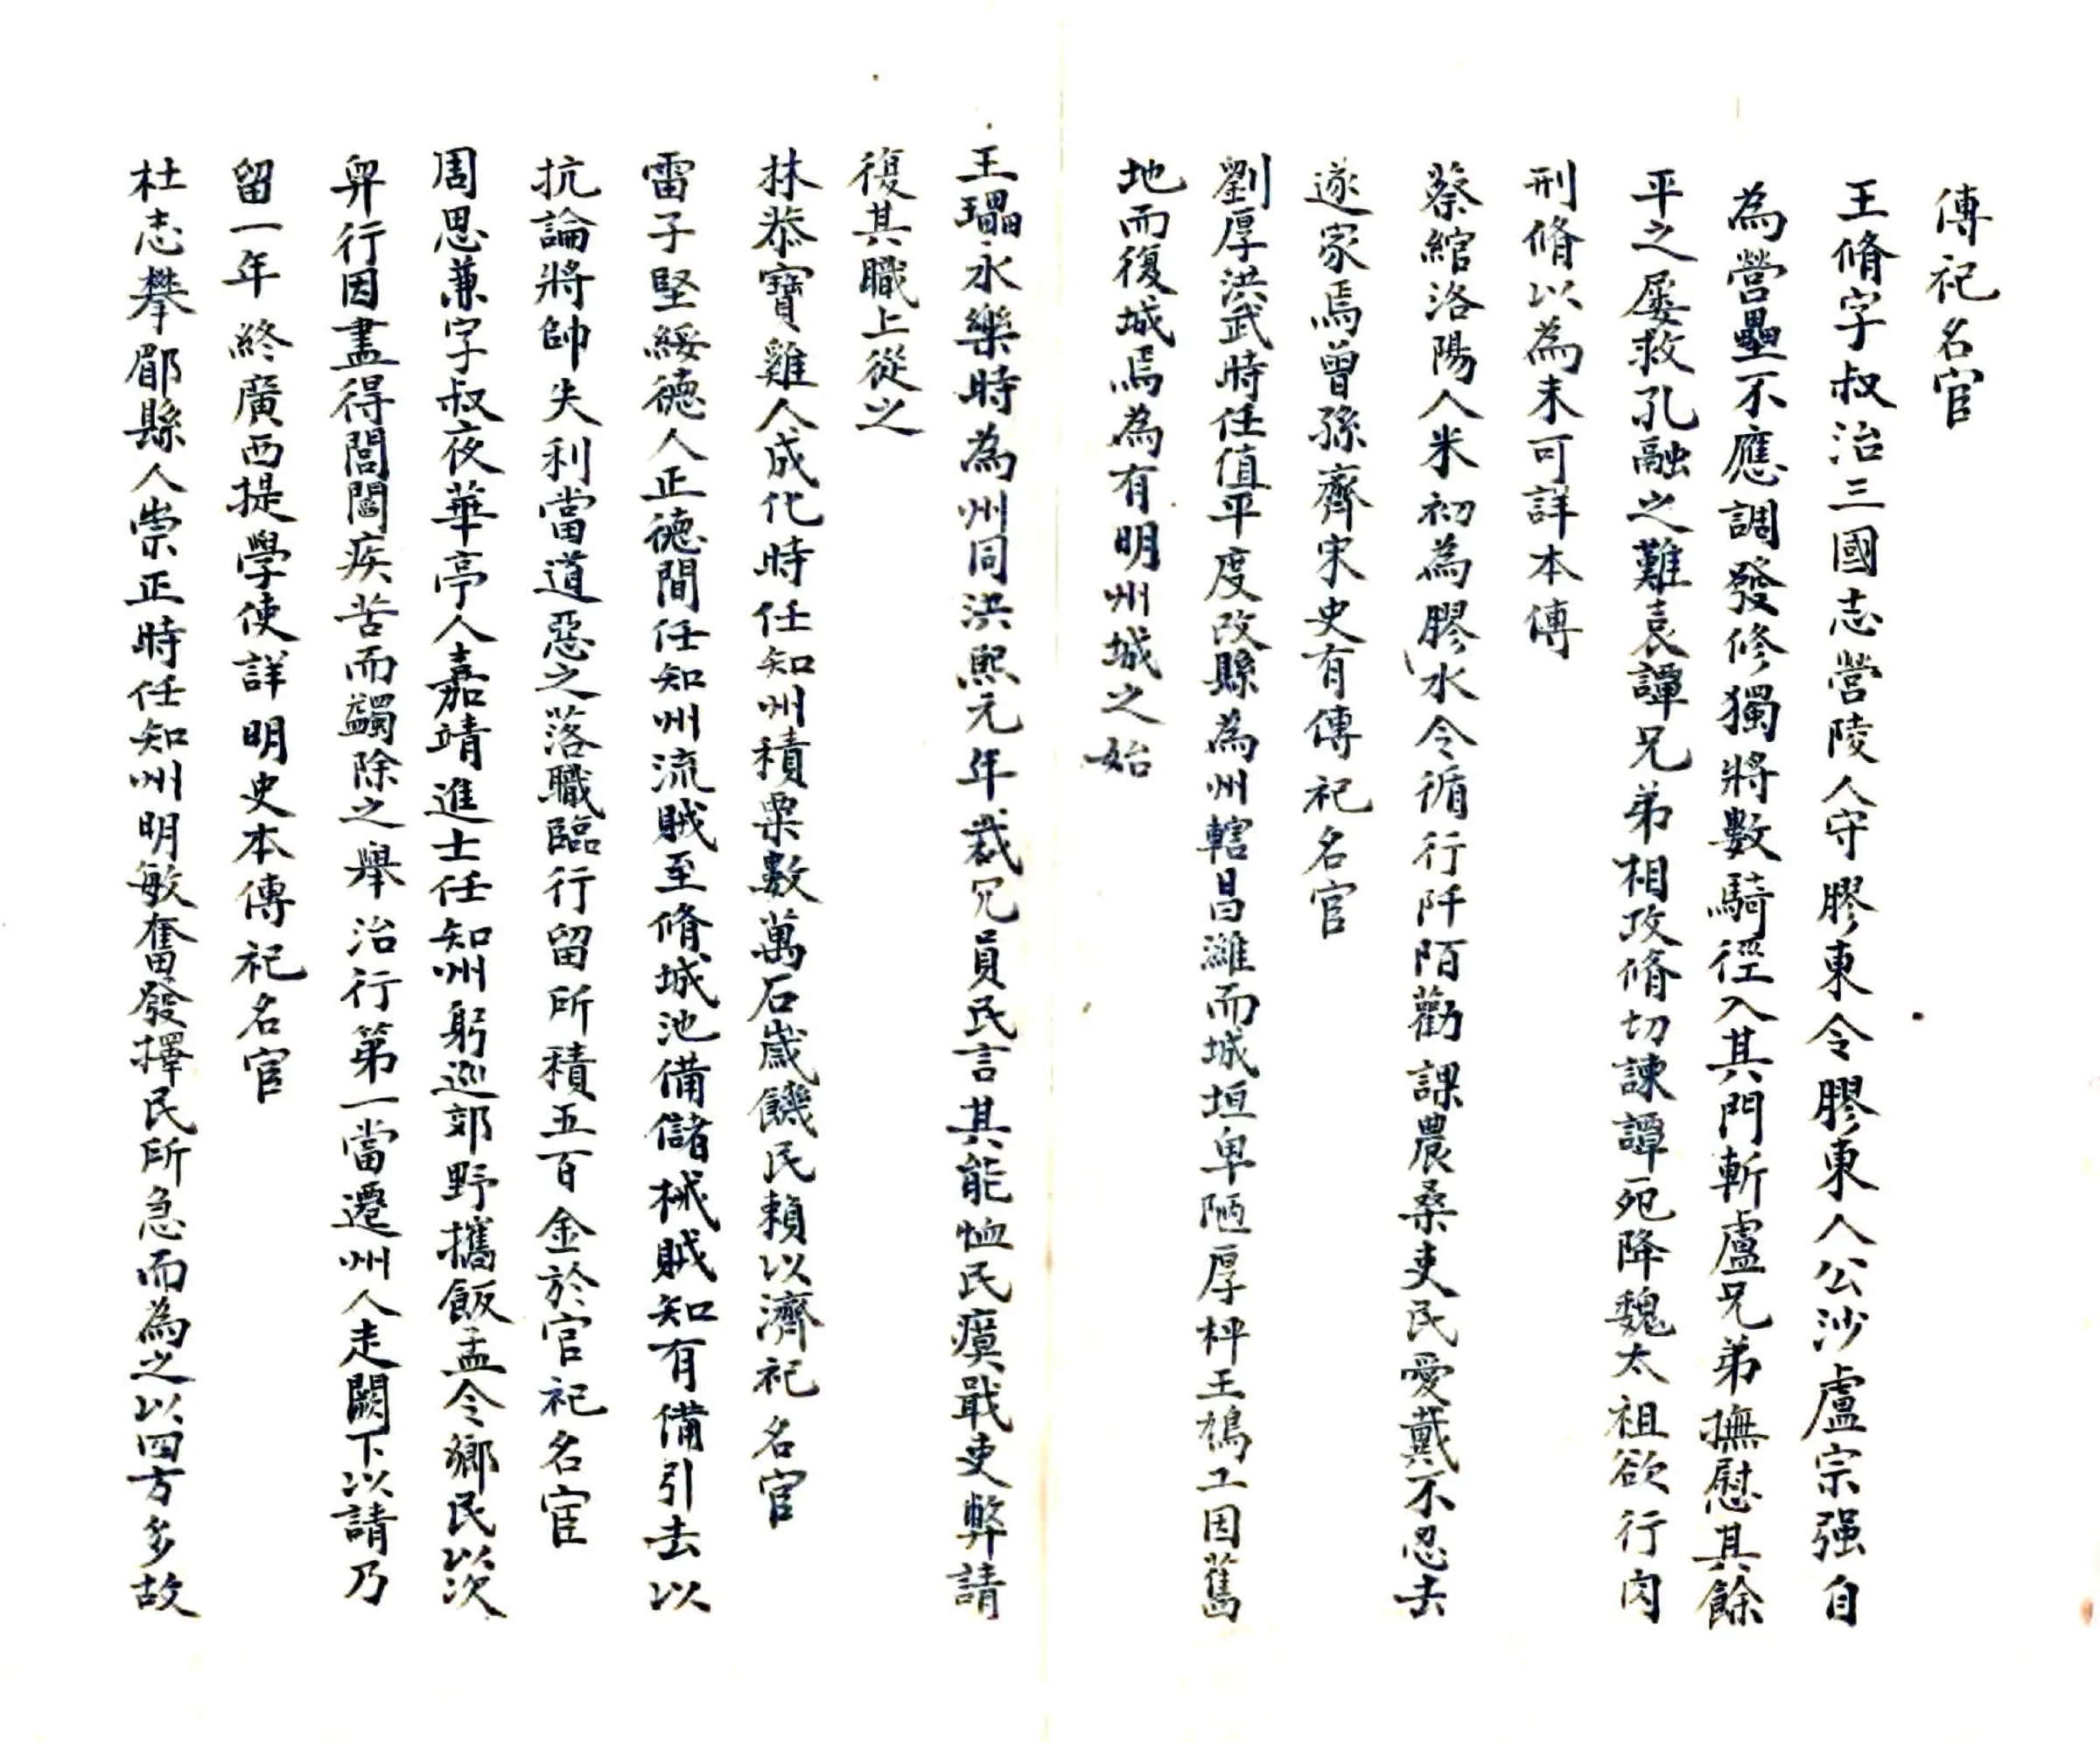 傳祀名宦
王脩字叔治三國志營陵人守膠東令膠東人公沙盧宗强自
為營壘不應調發修獨將數騎徑入其門斬盧兄弟撫慰其餘
平之屡救孔融之難袁譚兄弟相攻脩切諫譚死降魏太祖欲行肉
刑脩以為未可詳本傳
蔡綰洛陽人米初為膠水令循行阡陌勸課農桑吏民愛戴不忍去
遂家焉曾孫齊宋史有傳祀名宦
劉厚洪武時任值平度改縣為州轄昌濰而城垣卑陋厚枰王鳩工因舊
地而復城焉為有明州城之始
王瓃永樂時為州同洪熙元年裁冗員民言其能恤民瘼戢吏弊請
復其職上從之
林恭寶雞人成化時任知州積粟數萬石歲饑民賴以濟祀名宦
雷子堅綏德人正德間任知州流賊至脩城池備儲械賊知有備引去以
抗論將帥失利當道惡之落職臨行留所積五百金於官祀名宦
周思兼字叔夜華亭人嘉靖進士任知州躬巡郊野攜飯盂令鄉民以次
舁行因盡得閭閻疾苦而蠲除之舉治行第一當遷州人走闕下以請乃
留一年終廣西提學使詳明史本傳祀名宦
杜志攀郿縣人崇正時任知州明敏奮發擇民所急而為之以四方多故